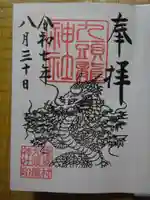 奉拝
九頭龍
神社
令和七年
八月三十日